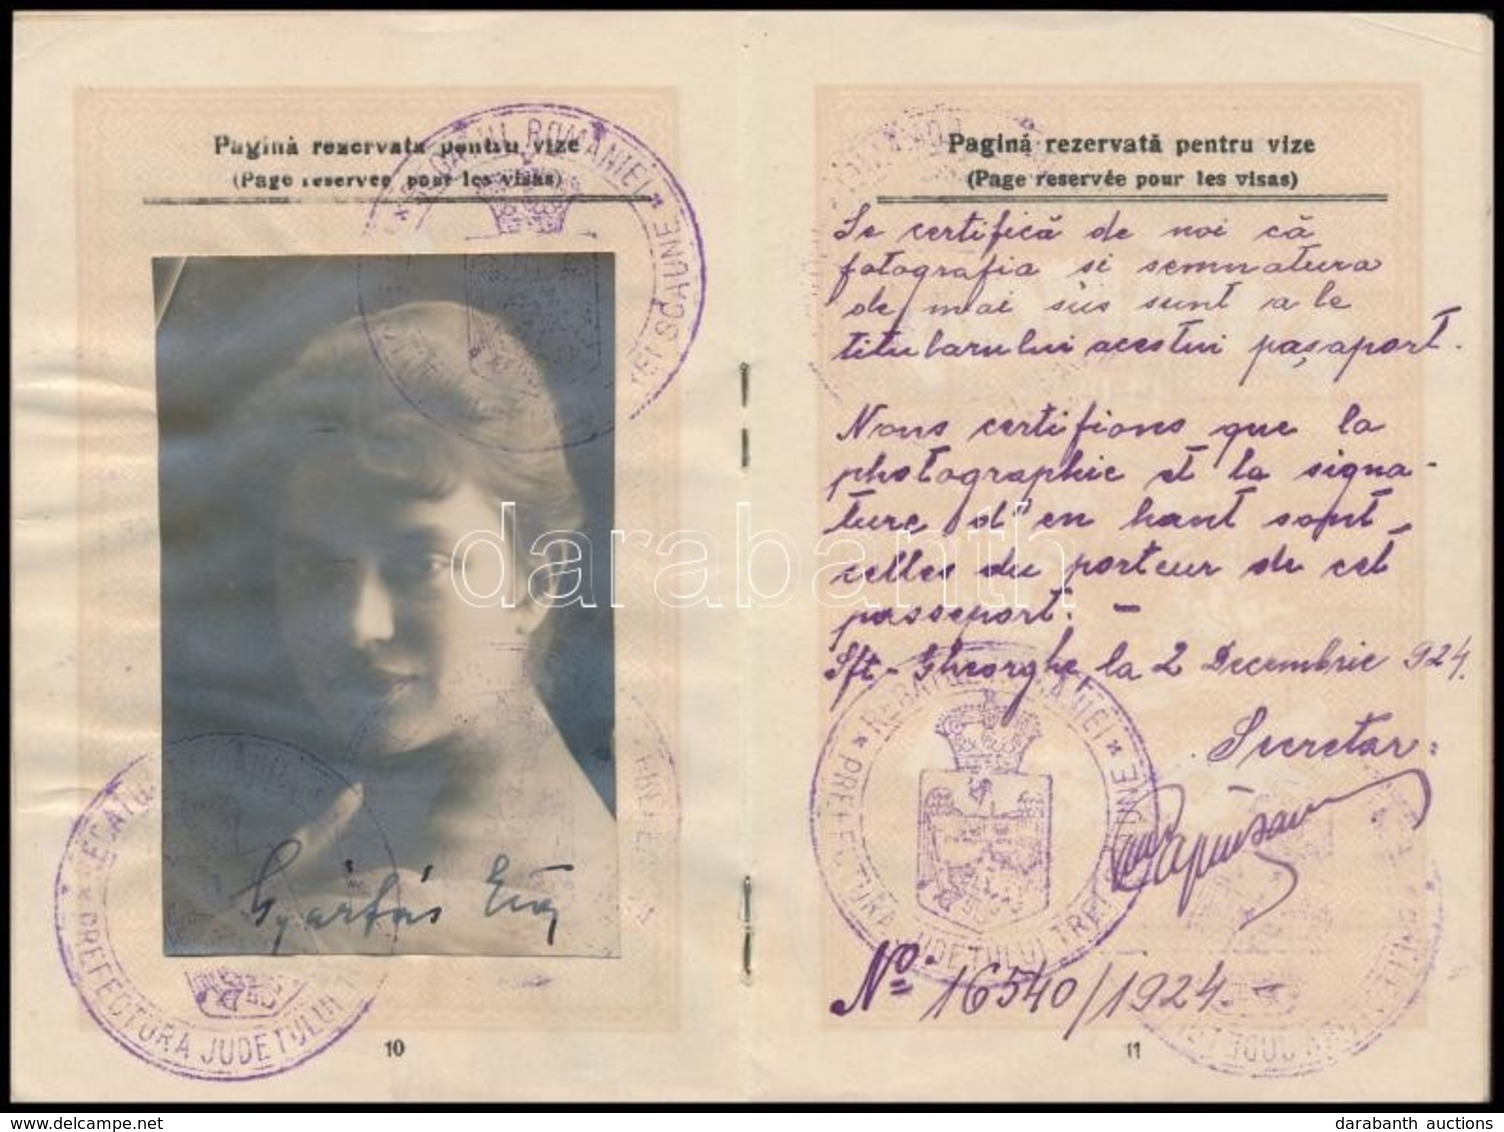 Pagină rezervata pentru vize
(Page reservée pour les visas)
REGATUL ROMÂNIEI * TREI SCAUNE *
Gyárfás Éva
PREFECTURA JUDEȚULUI
10
Pagină rezervată pentru vize
(Page reservée pour les visas)
Se certifică de noi că
fotografia si semnatura
de mai sus sunt a le
titubarului acestui pașaport.
Nous certifions que la
photographie et la signa-
ture d'en hant sont
celles du porteur de cet
passeport. —
Sft-Gheorghe, la 2 Decembrie 924.
Secretar:
REGATUL ROMÂNIEI * PREFECTURA JUDEȚULUI TREI SCAUNE
No 16540/1924.-
11
darabanth
delcampe.net
darabanth auctions